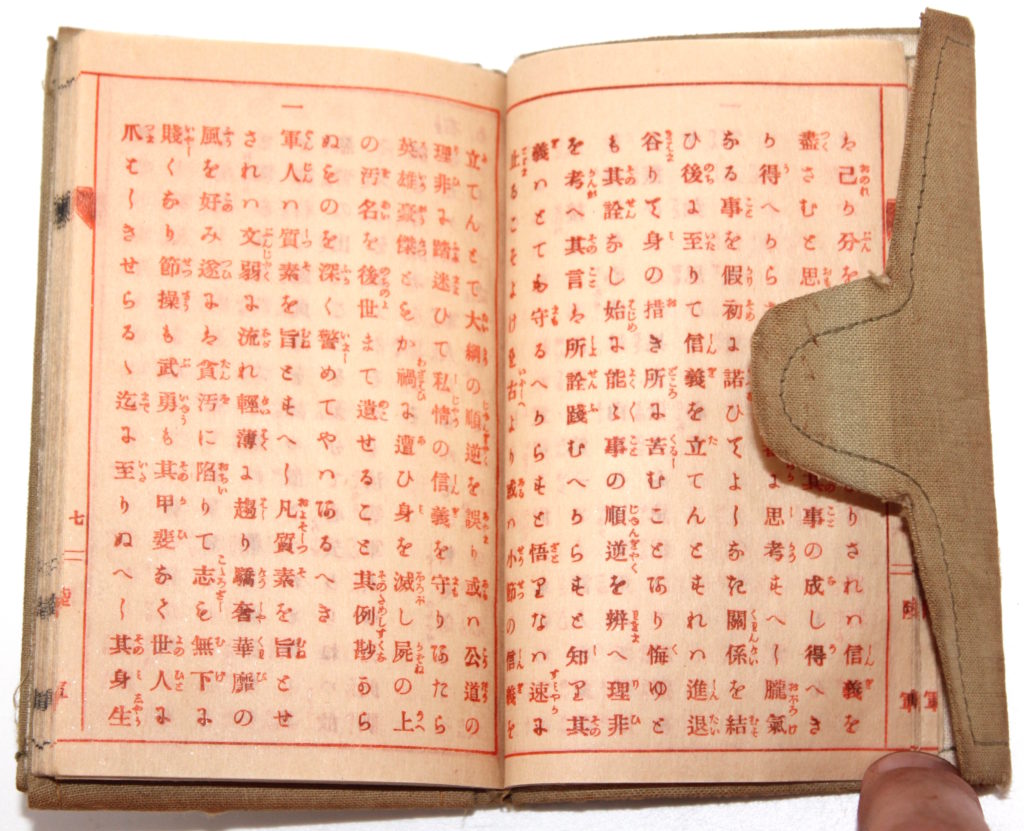 は己か分を りされは信義を
盡さむと思 其事の成し得へき
か得へから に思考すへし朧氣
なる事を假初に諾ひてよしなき關係を結
ひ後に至りて信義を立てんとすれは進退
谷りて身の措き所に苦むことあり悔ゆと
も其詮なし始に能々事の順逆を辨へ理非
を考へ其言は所詮踐むへからすと知り其
義はとても守るへからすと悟りなは速に
止るこそよけれ古より或は小節の信義を
立てんとて大綱の順逆を誤り或は公道の
理非に踏迷ひて私情の信義を守りあたら
英雄豪傑ともか禍に遭ひ身を滅し屍の上
の汚名を後世まて遺せること其例尠から
ぬものを深く警めてやはあるへき
一
軍人は質素を旨とすへし凡質素を旨とせ
されは文弱に流れ輕薄に趨り驕奢華靡の
風を好み遂には貪汚に陷りて志も無下に
賤くなり節操も武勇も其甲斐なく世人に
爪はしきせらるゝ迄に至りぬへし其身生
七